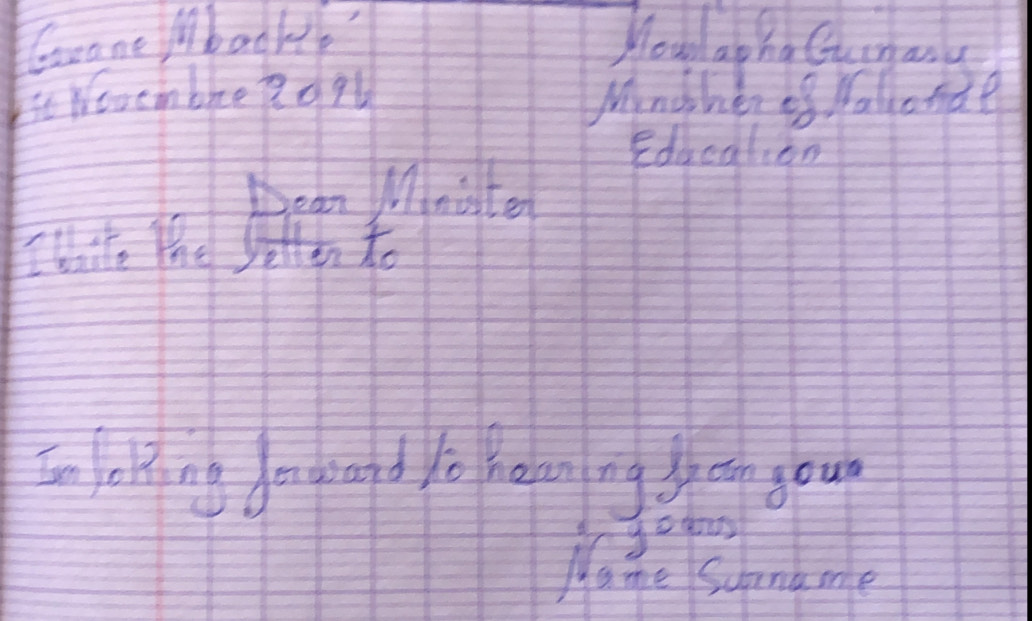 Gawane Mbacké
Novembre 2024
Moustapha Guirassy
Minister of National
Education
Dear Minister
I Write the letter to
Im loking forward to hearing from your
yours
Name Surname